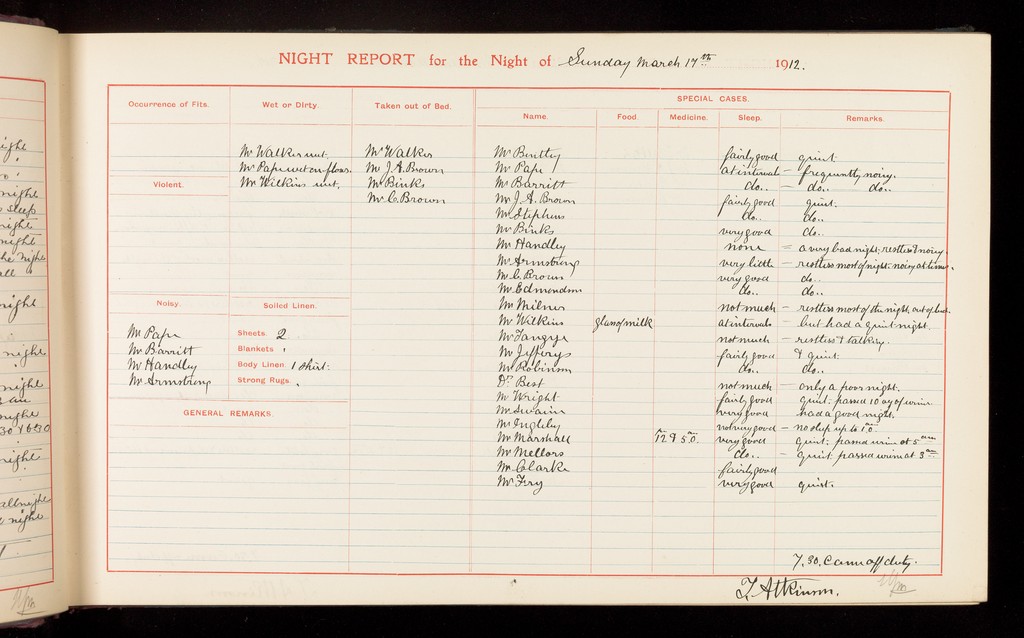 NIGHT REPORT for the Night of Sunday March 17th 1912.
Occurrence of Fits. Wet or Dirty. Taken out of Bed. SPECIAL CASES.
Name. Food. Medicine. Sleep. Remarks.
Mr Walker wet. Mr Walker Mr Bentley fairly good quiet
Mr Pape wet on floor. Mr J. A. Brown Mr Pape at intervals - frequently noisy.
Violent. Mr Wilkins wet. Mr Binks Mr Barritt do.. - do.. do..
Mr C. Brown Mr J. A. Brown fairly good quiet.
Mr Stephens do.. do..
Mr Binks very good do..
Mr Handley none - a very bad night, restless & noisy.
Mr Armstrong very little - restless most of night, noisy at times.
Mr C. Brown very good do..
Mr Edmondson do.. do..
Noisy. Soiled Linen. Mr Milner not much - restless most of the night, out of bed.
Mr Wilkins glass of milk at intervals - but had a quiet night.
Mr Pape Sheets. 2 Mr Tangye not much - restless & talking.
Mr Barritt Blankets Mr Jefferys fairly good & quiet.
Mr Handley Body Linen. 1 Shirt. Mr Robinson do.. do..
Mr Armstrong Strong Rugs. Dr Best not much - only a poor night.
Mr Wright fairly good quiet. passed 10 oz of urine
GENERAL REMARKS. Mr Swain very good had a good night.
Mr Inglby not very good - no sleep up to
Mr Marshall very good quiet, passed urine at 5 am
Mr Mellors do.. - quiet. passed urine at 3 am
Mr Clarke fairly good
Mr Fry very good quiet.
7.30. Came off duty.
T. Atkinson.